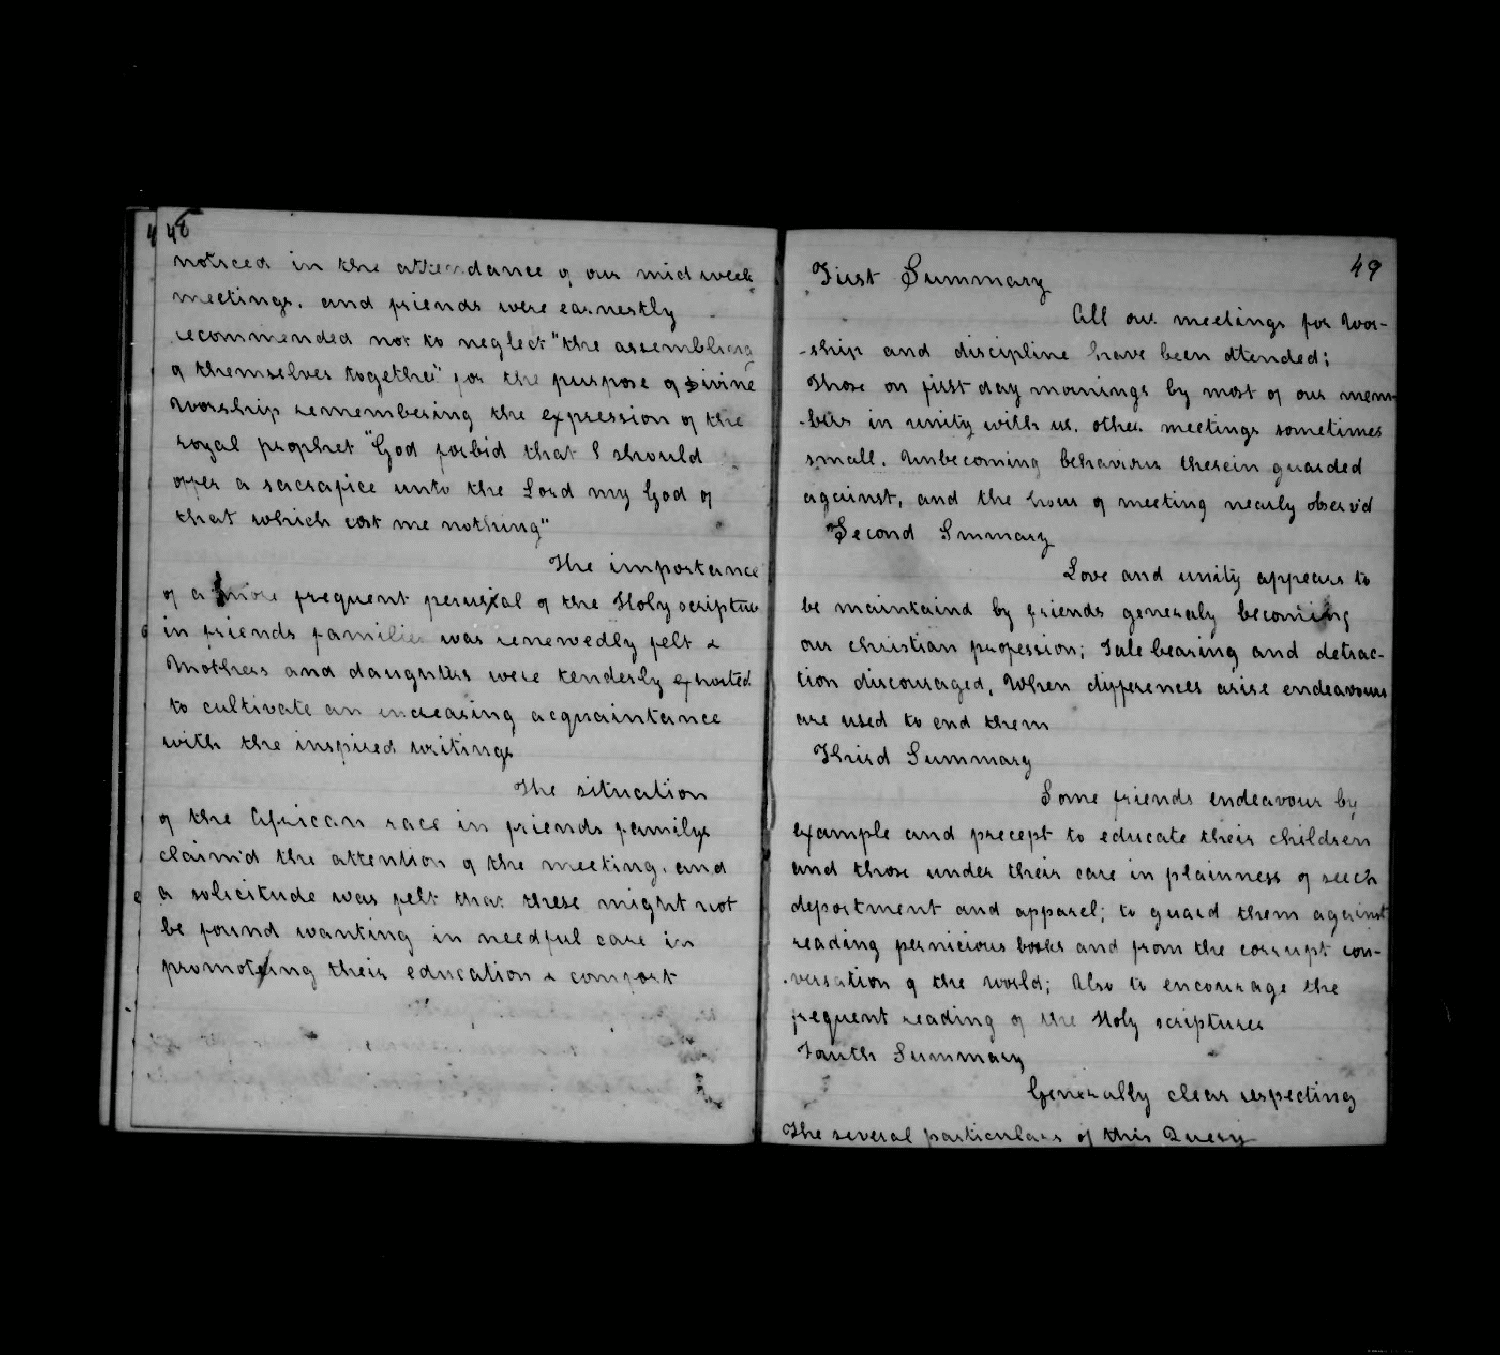 48
noticed in the attendance of our mid week
meetings. and friends were earnestly
recommended not to neglect "the assembling
of themselves together" for the purpose of divine
Worship remembering the expression of the
royal prophet "God forbid that I should
offer a sacrafice unto the Lord my God of
that which cost me nothing"
The importance
of a more frequent perusal of the Holy scriptures
in friends families was renewedly felt &
Mothers and daughters were tenderly exhorted
to cultivate an increasing acquaintance
with the inspired writings
The situation
of the African race in friends familys
claim'd the attention of the meeting. and
a solicitude was felt that these might not
be found wanting in needful care in
promoting their education & comfort
49
First Summary
All our meetings for Wor-
-ship and discipline have been attended;
Those on first day mornings by most of our mem-
-bers in unity with us. other meetings sometimes
small. Unbecoming behaviour therein guarded
against, and the hour of meeting nearly observ'd
Second Smmary
Love and unity appears to
be maintaind by friends generaly becoming
our christian profession; Tale bearing and detrac-
tion discouraged, When differences arise endeavours
are used to end them
Third Summary
Some friends endeavour by
example and precept to educate their children
and those under their care in plainness of seech
deportment and apparel; to guard them against
reading pernicious books and from the corrupt con-
-versation of the world; Also to encourage the
frequent reading of the Holy scriptures
Fouth Summary
Generally clear respecting
The several particulars of this Query